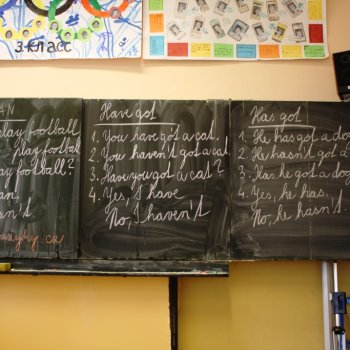 3-КЛАСС
AN
play football
play football
play football?
an.
an't
Have got
1. You have got a cat.
2. You haven't got a cat.
3. Have you got a cat?
4. Yes, I have
No, I haven't
Has got
1. He has got a dog
2. He hasn't got a
3. Has he got a dog
4. Yes, he has,
No, he hasn't.